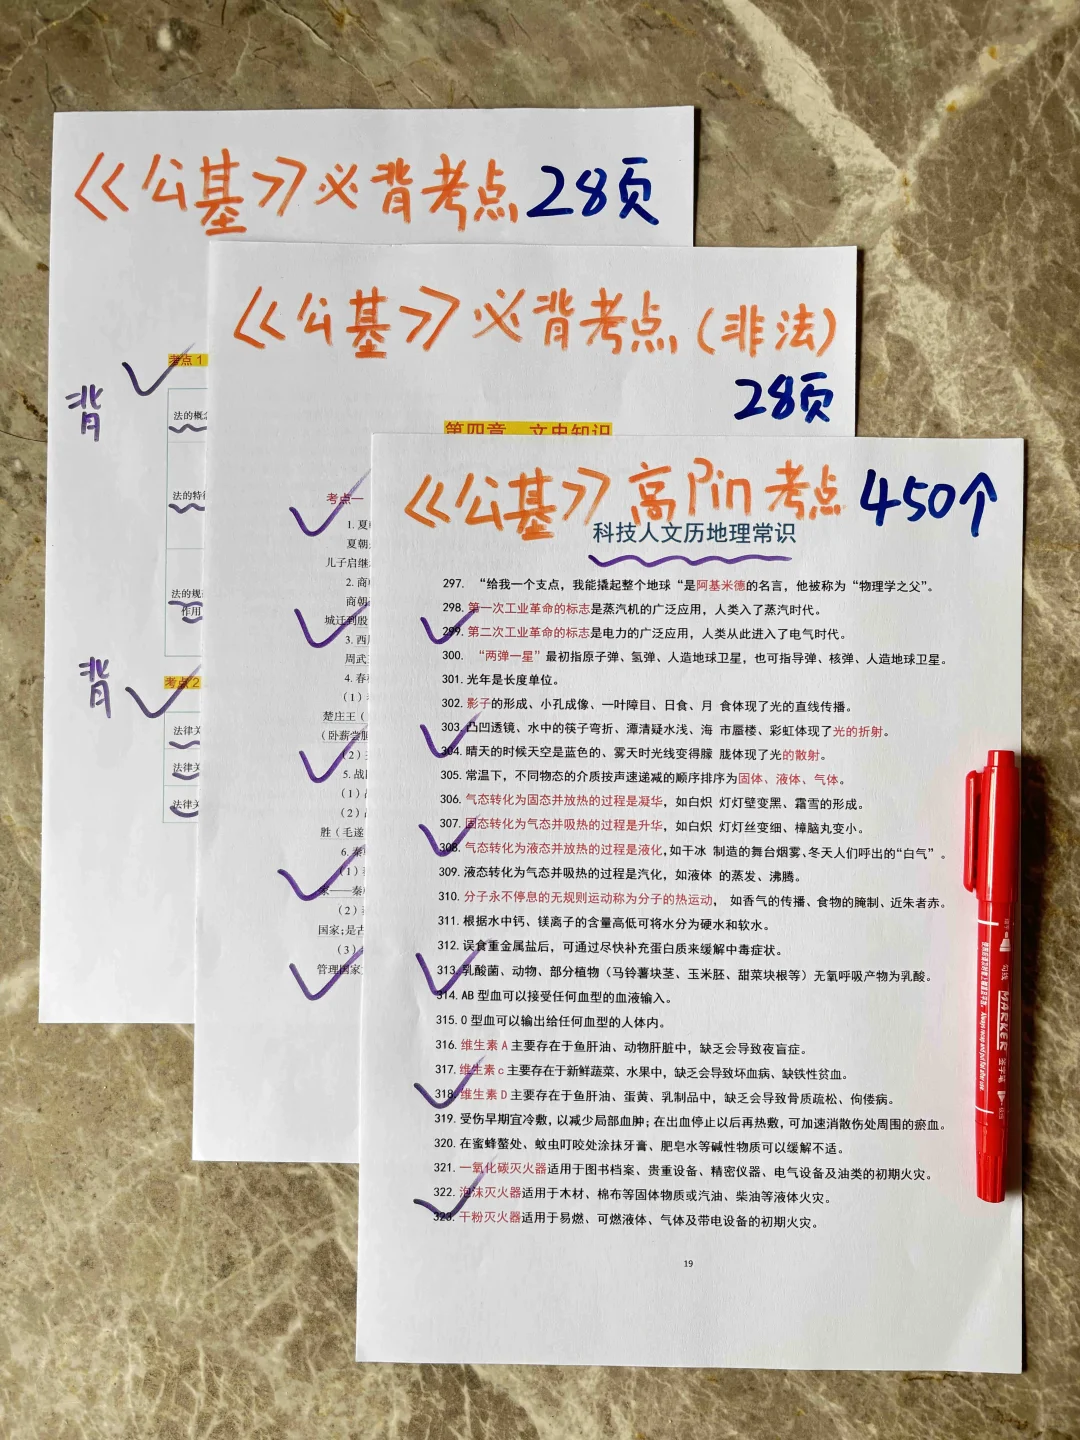 《公基》必背考点28页
考点1
背
法的概念
法的特
法的规
作用
背
考点2
法律关
法律关
法律关
《公基》必背考点(非法)
28页
第四章 文史知识
考点一
1. 夏
夏朝
儿子启继
2. 商
商朝
城迁到殷
3. 西周
周武
4. 春
(1)
楚庄王(
(卧薪尝胆
(2)
5. 战
(1)
(2)
胜(毛遂
6. 秦
(1)
家——秦
(2)
国家;是古
(3)
管理国家
《公基》高Pin考点450个
科技人文历地理常识
297. “给我一个支点,我能撬起整个地球“是阿基米德的名言,他被称为“物理学之父”。
298. 第一次工业革命的标志是蒸汽机的广泛应用,人类入了蒸汽时代。
299. 第二次工业革命的标志是电力的广泛应用,人类从此进入了电气时代。
300. “两弹一星”最初指原子弹、氢弹、人造地球卫星,也可指导弹、核弹、人造地球卫星。
301. 光年是长度单位。
302. 影子的形成、小孔成像、一叶障目、日食、月 食体现了光的直线传播。
303. 凸凹透镜、水中的筷子弯折、潭清疑水浅、海 市蜃楼、彩虹体现了光的折射。
304. 晴天的时候天空是蓝色的、雾天时光线变得朦 胧体现了光的散射。
305. 常温下,不同物态的介质按声速递减的顺序排序为固体、液体、气体。
306. 气态转化为固态并放热的过程是凝华,如白炽 灯灯壁变黑、霜雪的形成。
307. 固态转化为气态并吸热的过程是升华,如白炽 灯灯丝变细、樟脑丸变小。
308. 气态转化为液态并放热的过程是液化,如干冰 制造的舞台烟雾、冬天人们呼出的“白气”。
309. 液态转化为气态并吸热的过程是汽化,如液体 的蒸发、沸腾。
310. 分子永不停息的无规则运动称为分子的热运动, 如香气的传播、食物的腌制、近朱者赤。
311. 根据水中钙、镁离子的含量高低可将水分为硬水和软水。
312. 误食重金属盐后,可通过尽快补充蛋白质来缓解中毒症状。
313. 乳酸菌、动物、部分植物(马铃薯块茎、玉米胚、甜菜块根等)无氧呼吸产物为乳酸。
314. AB 型血可以接受任何血型的血液输入。
315. O 型血可以输出给任何血型的人体内。
316. 维生素 A 主要存在于鱼肝油、动物肝脏中,缺乏会导致夜盲症。
317. 维生素 c 主要存在于新鲜蔬菜、水果中,缺乏会导致坏血病、缺铁性贫血。
318. 维生素 D 主要存在于鱼肝油、蛋黄、乳制品中,缺乏会导致骨质疏松、佝偻病。
319. 受伤早期宜冷敷,以减少局部血肿;在出血停止以后再热敷,可加速消散伤处周围的瘀血。
320. 在蜜蜂螫处、蚊虫叮咬处涂抹牙膏、肥皂水等碱性物质可以缓解不适。
321. 一氧化碳灭火器适用于图书档案、贵重设备、精密仪器、电气设备及油类的初期火灾。
322. 泡沫灭火器适用于木材、棉布等固体物质或汽油、柴油等液体火灾。
323. 干粉灭火器适用于易燃、可燃液体、气体及带电设备的初期火灾。
19
勾线 MARKER 签字笔
Always recap and put flat after use.